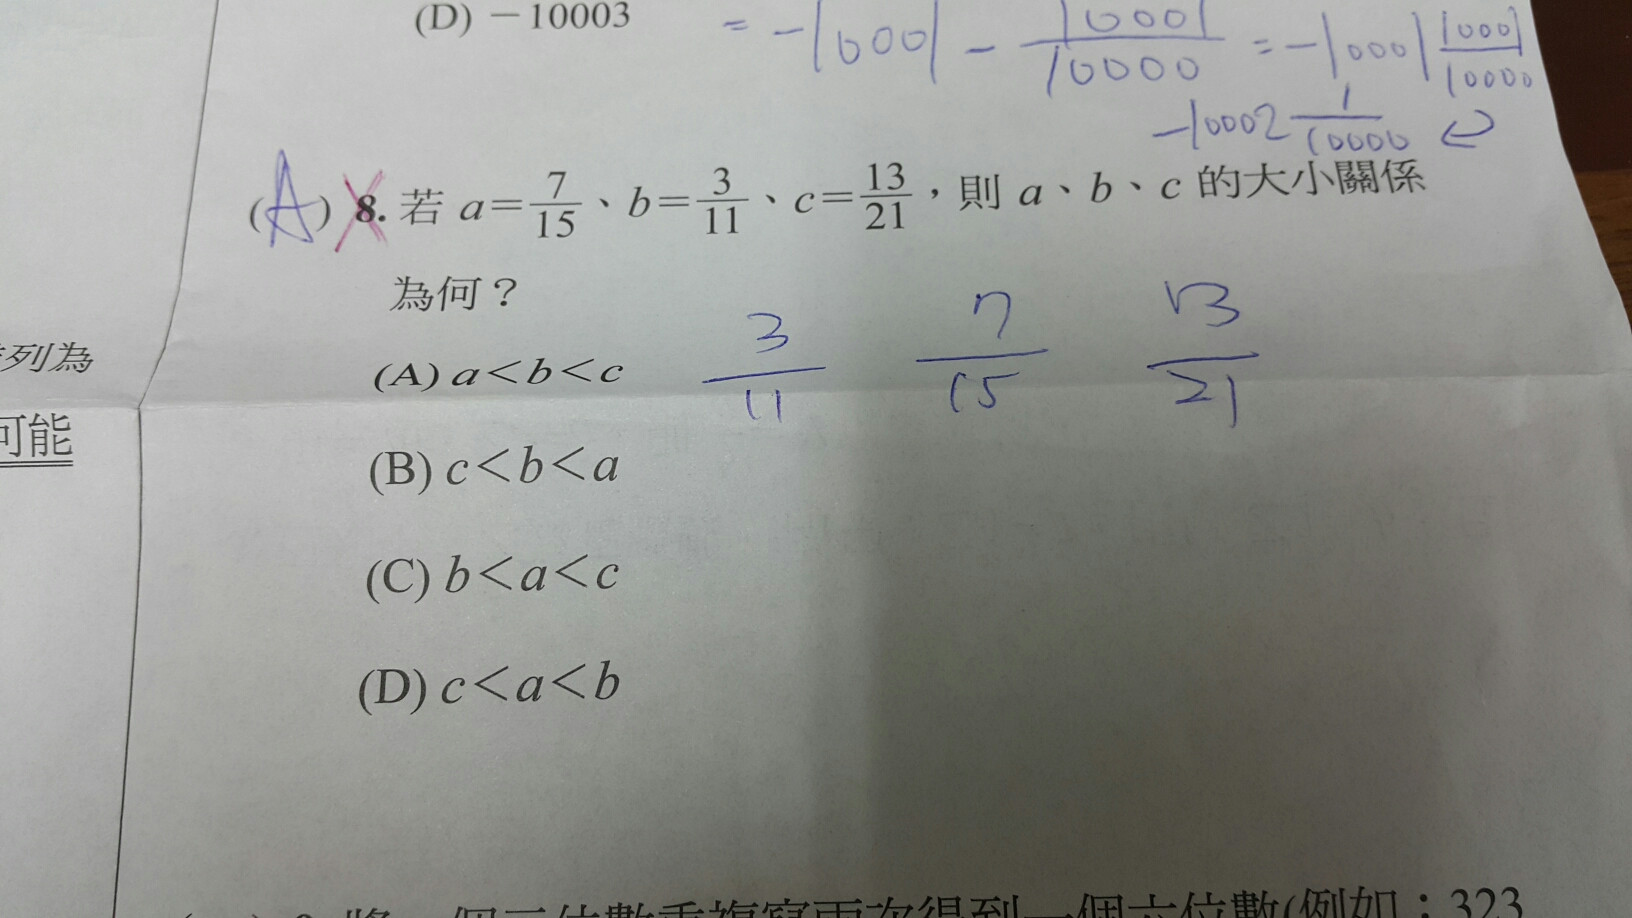 (D) －10003
= -10001 - 10001/10000 = -10001 10001/10000
-10002 1/10000 ↩
(A) 8. 若 a＝7/15、b＝3/11、c＝13/21，則 a、b、c 的大小關係
為何？
3/11 7/15 13/21
列為
(A) a＜b＜c
可能
(B) c＜b＜a
(C) b＜a＜c
(D) c＜a＜b
個三位數重複寫兩次得到一個六位數(例如：323